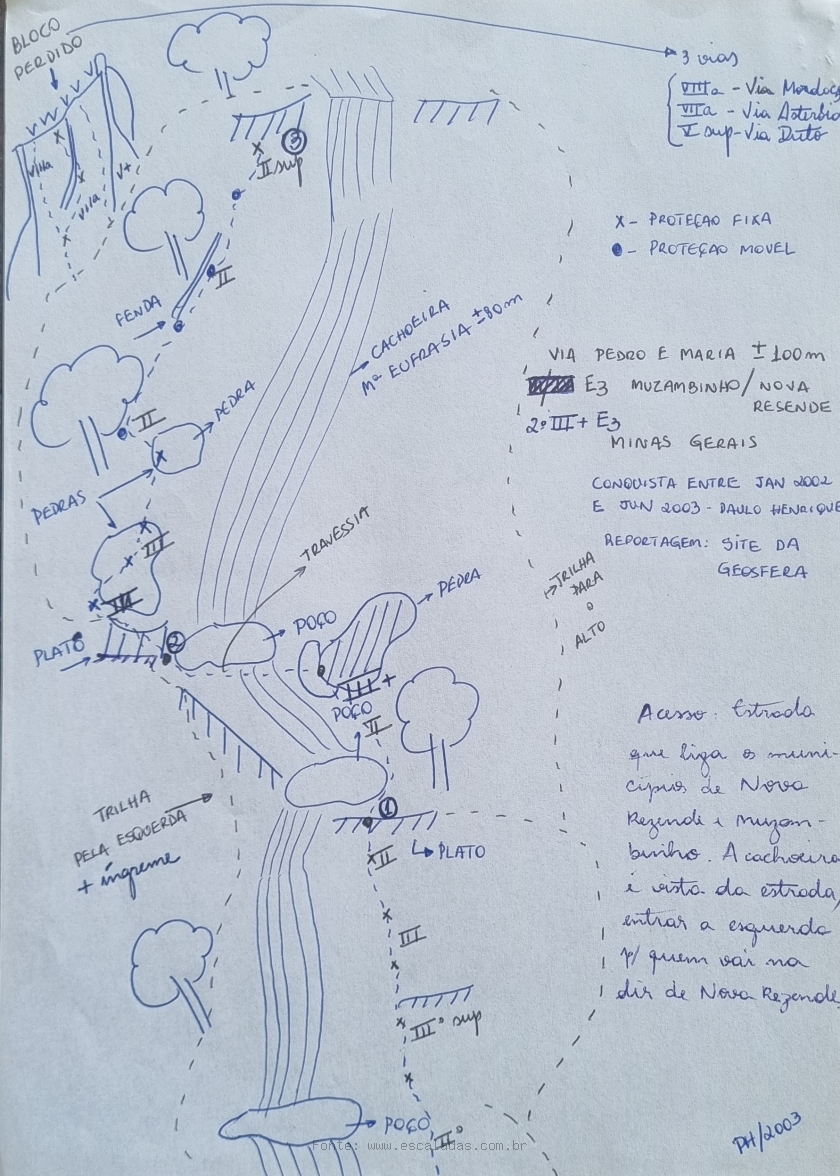 BLOCO
PERDIDO
3 vias
VIIIa - Via
VIIa - Via
V sup - Via Dirto
VIIIa
VIIa
V+
3
II sup
X - PROTEÇAO FIXA
- PROTEÇAO MOVEL
II
FENDA
CACHOEIRA
Mª EUFRASIA ±80m
VIA PEDRO E MARIA ±100m
E3 MUZAMBINHO/NOVA
RESENDE
2º III+ E3
MINAS GERAIS
CONQUISTA ENTRE JAN 2002
E JUN 2003 - PAULO HENRIQUE
REPORTAGEM: SITE DA
GEOSFERA
II
PEDRA
PEDRAS
III
TRAVESSIA
TRILHA
PARA
O
ALTO
PLATÔ
2
POÇO
PEDRA
POÇO
II
Acesso: Estrada
que liga os muni-
cípios de Nova
Rezende e Muzam-
binho. A cachoeira
é vista da estrada,
entrar a esquerda
p/ quem vai na
dir de Nova Rezende
TRILHA
PELA ESQUERDA
+ íngreme
1
II
PLATO
III
IIIº sup
POÇO
IIº
PH/2003
Fonte: www.escaladas.com.br